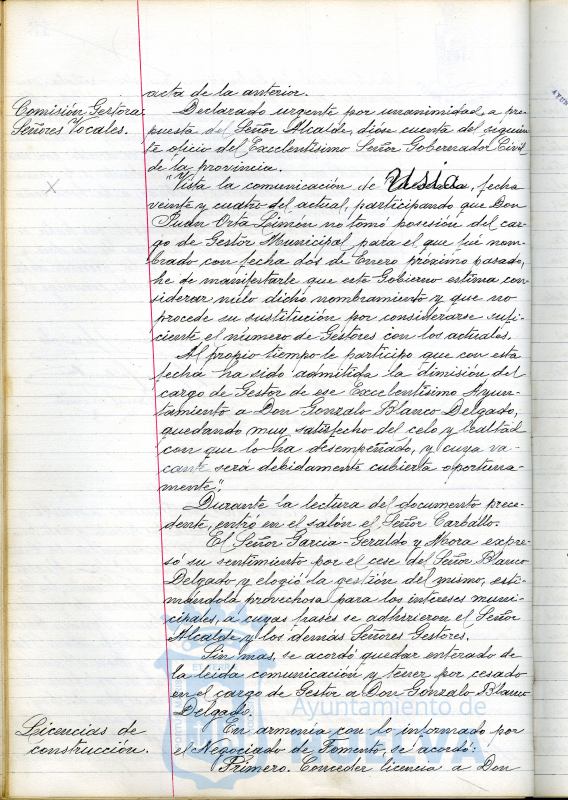 acta de la anterior.
Comisión Gestora:
Señores Vocales.
Declarado urgente por unanimidad, a pro-
puesta del Señor Alcalde, dióse cuenta del siguien-
te oficio del Excelentísimo Señor Gobernador Civil
de la provincia.
"Vista la comunicación de Usía, fecha
veinte y cuatro del actual, participando que Don
Juan Orta Limón no tomó posesión del car-
go de Gestor Municipal para el que fué nom-
brado con fecha dos de Enero próximo pasado,
he de manifestarle que este Gobierno estima con-
siderar nulo dicho nombramiento y que no
procede su sustitución por considerarse sufi-
ciente el número de Gestores con los actuales.
Al propio tiempo le participo que con esta
fecha ha sido admitida la dimisión del
cargo de Gestor de ese Excelentísimo Ayun-
tamiento a Don Gonzalo Blanco Delgado,
quedando muy satisfecho del celo y lealtad
con que lo ha desempeñado, y cuya va-
cante será debidamente cubierta oportuna-
mente".
Durante la lectura del documento prece-
dente, entró en el salón el Señor Carballo.
El Señor Garcia-Geraldo y Mora expre-
só su sentimiento por el cese del Señor Blanco
Delgado y elogió la gestión del mismo, esti-
mándola provechosa para los intereses muni-
cipales, a cuyas frases se adhirieron el Señor
Alcalde y los demás Señores Gestores.
Sin mas, se acordó quedar enterado de
la leida comunicación y tener por cesado
en el cargo de Gestor a Don Gonzalo Blanco
Delgado.
Ayuntamiento de
HUELVA
Licencias de
construcción.
En armonía con lo informado por
el Negociado de Fomento, se acordó:
Primero. Conceder licencia a Don